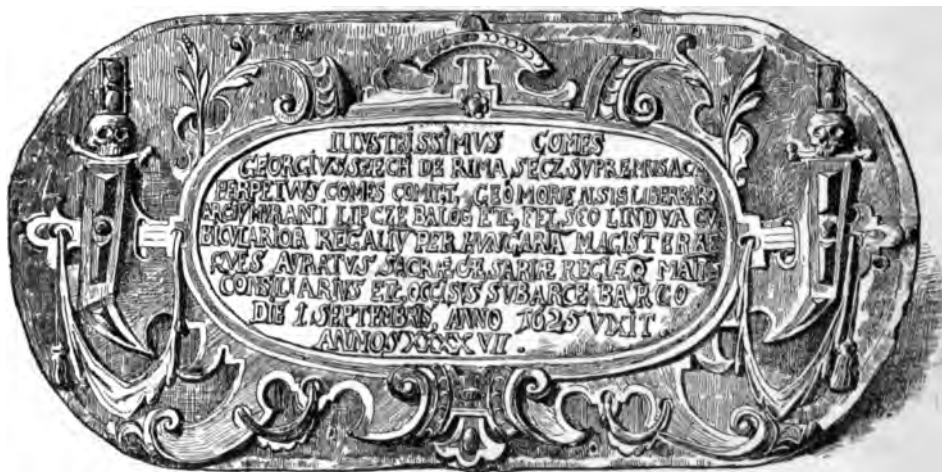 ILLVSTRISSIMVS COMES
GEORGIVS SZECHI DE RIMA SECZ SVPREMVS AC
PERPETVVS COMES COMITT. GEÖMÖRIENSIS LIBER BARO
MVRANI LIPCZE BALOG ETC, FELSEO LINDVA CV
BICVLARIOR REGALIV PER HVNGARIÃ MAGISTER
AVRATVS SACRÆ CESARIÆ REGIÆQ MATIS
CONSILIARIVS ET OCCISIS SVB ARCE
DIE 1. SEPTEMBRIS, ANNO 1625 VIXIT.
ANNOS XXXXVII.